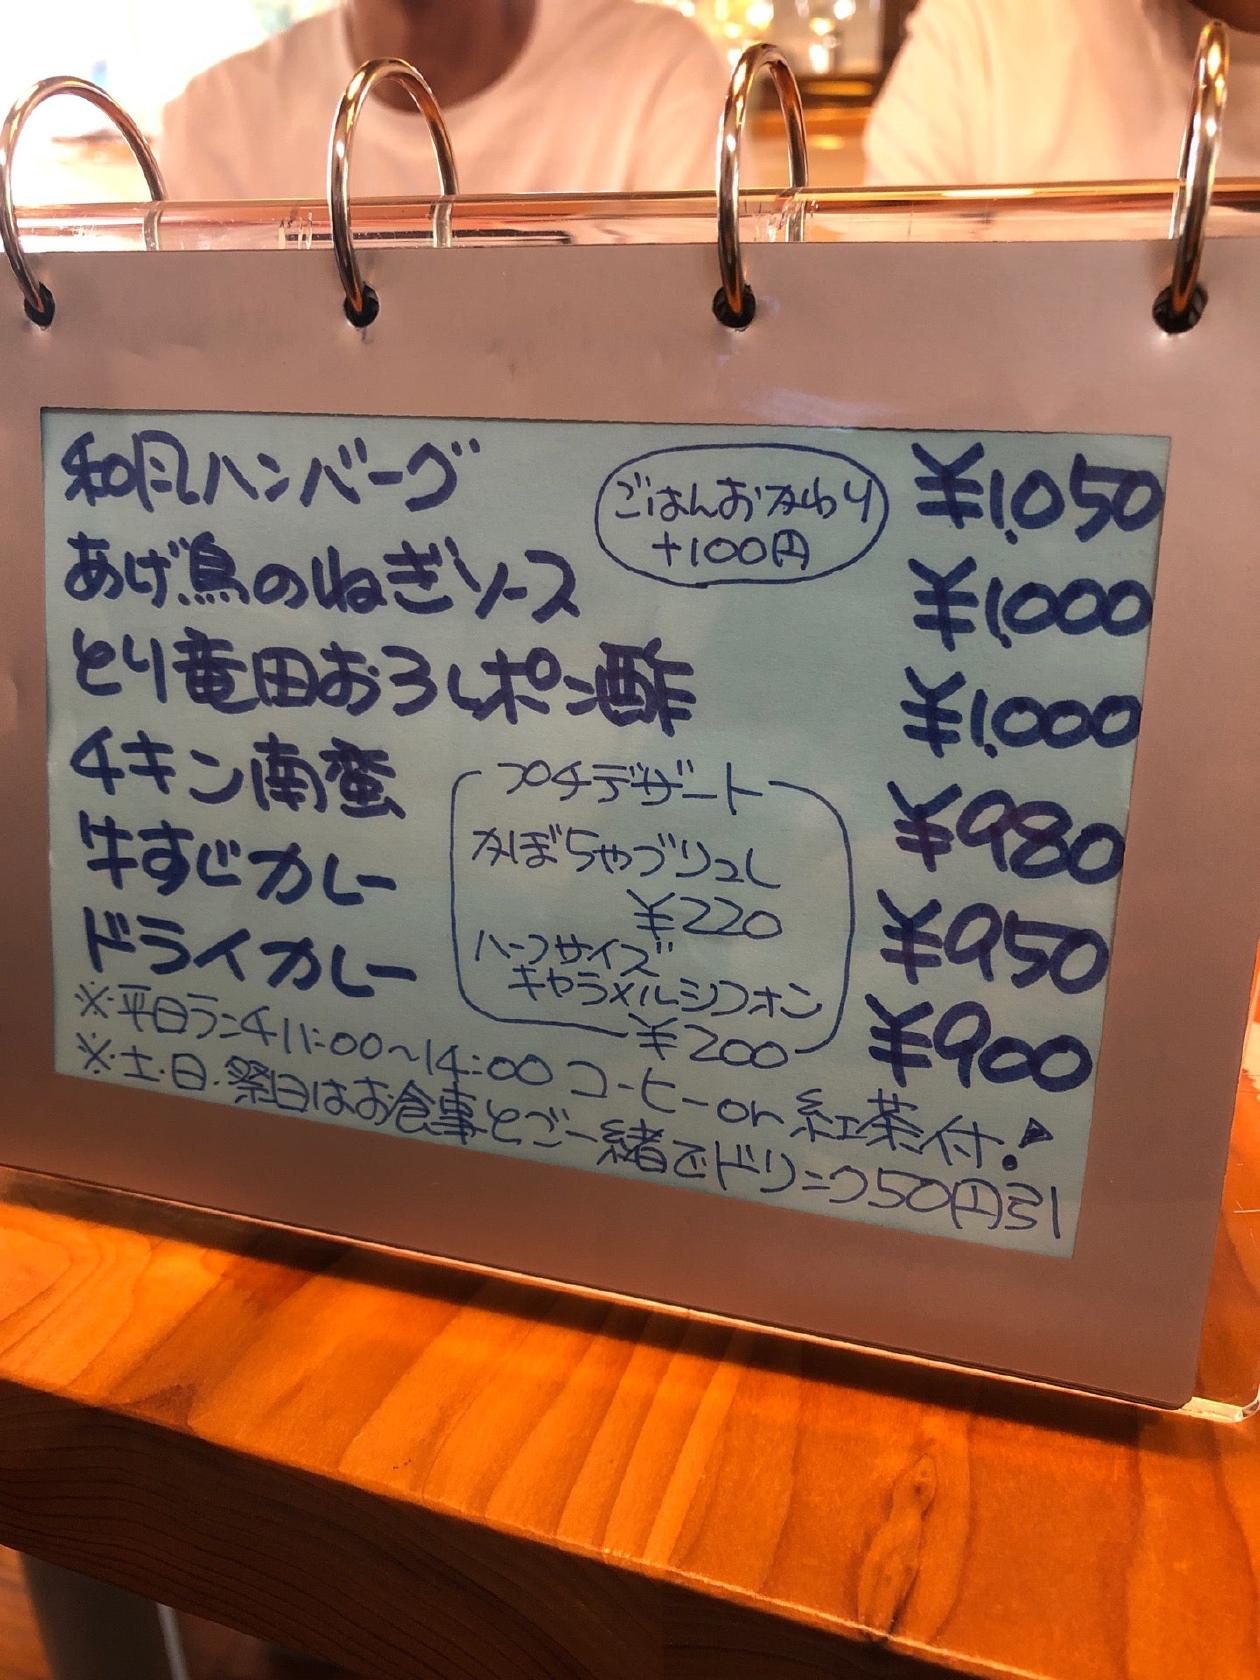 和風ハンバーグ ¥1,050
ごはんおかわり
+100円
あげ鳥のねぎソース ¥1,000
とり竜田おろしポン酢 ¥1,000
チキン南蛮 ¥980
牛すじカレー ¥950
ドライカレー ¥900
プチデザート
かぼちゃブリュレ
¥220
ハーフサイズ
キャラメルシフォン
¥200
※平日ランチ11:00~14:00 コーヒーor紅茶付!
※土・日・祭日はお食事とご一緒でドリンク50円引